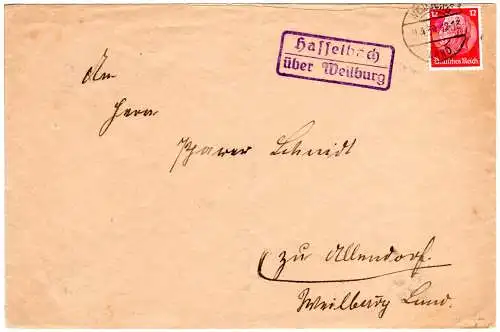 Hasselbach
über Weilburg
12
12
Deutsches Reich
An
Herrn
Pfarrer Schmidt
zu Allendorf.
Weilburg Land.